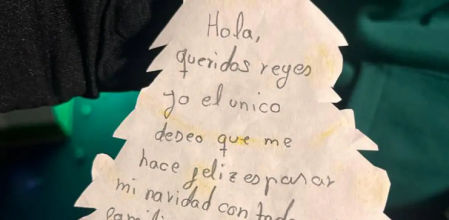 Hola,
queridos reyes
yo el unico
deseo que me
hace feliz es pasar
mi navidad con toda